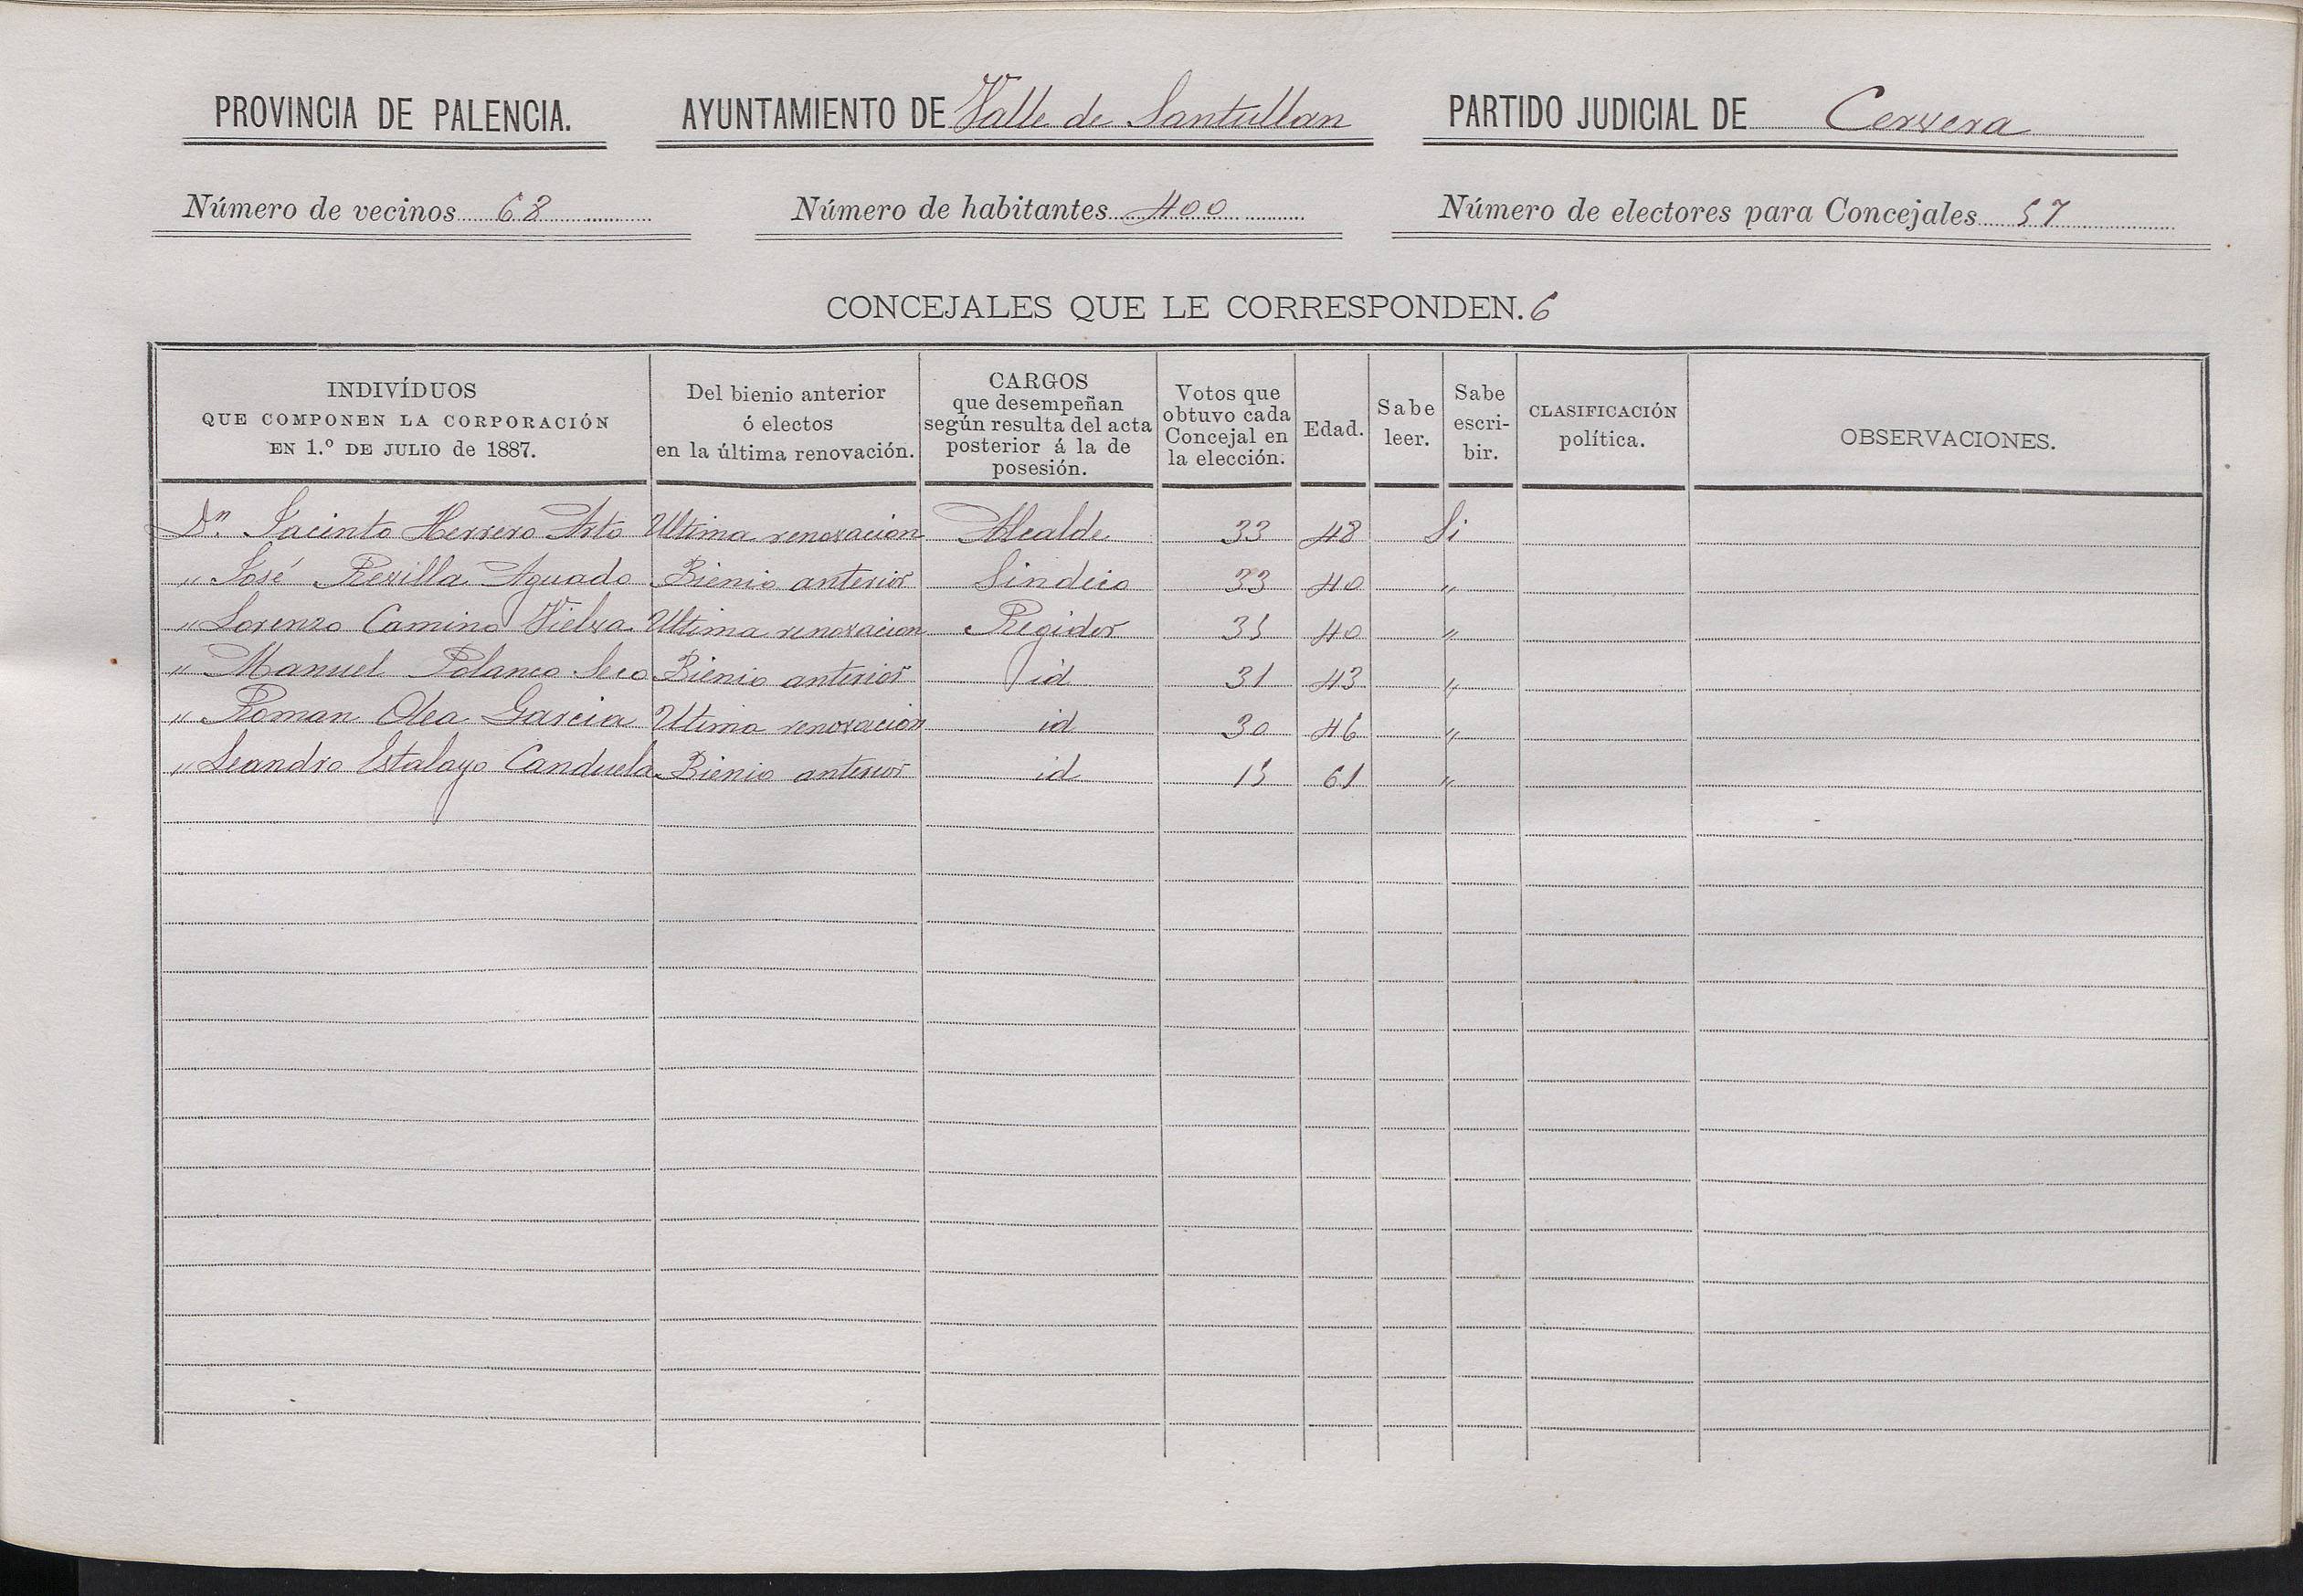 PROVINCIA DE PALENCIA. AYUNTAMIENTO DE Valle de Santullan PARTIDO JUDICIAL DE Cervera
Número de vecinos 68 Número de habitantes 400 Número de electores para Concejales 57
CONCEJALES QUE LE CORRESPONDEN. 6
INDIVÍDUOS
QUE COMPONEN LA CORPORACIÓN
EN 1.º DE JULIO de 1887.
Del bienio anterior
ó electos
en la última renovación.
CARGOS
que desempeñan
según resulta del acta
posterior á la de
posesión.
Votos que
obtuvo cada
Concejal en
la elección.
Edad.
Sabe
leer.
Sabe
escri-
bir.
CLASIFICACIÓN
política.
OBSERVACIONES.
Dn. Jacinto Herrero Arto Ultima renovacion Alcalde 33 48 Si
" José Revilla Aguado Bienio anterior Sindico 33 40 "
" Lorenzo Camino Vielva Ultima renovacion Regidor 35 40 "
" Manuel Polanco Seco Bienio anterior id 31 43 "
" Roman Olea Garcia Ultima renovacion id 30 46 "
" Leandro Estalayo Canduela Bienio anterior id 15 61 "